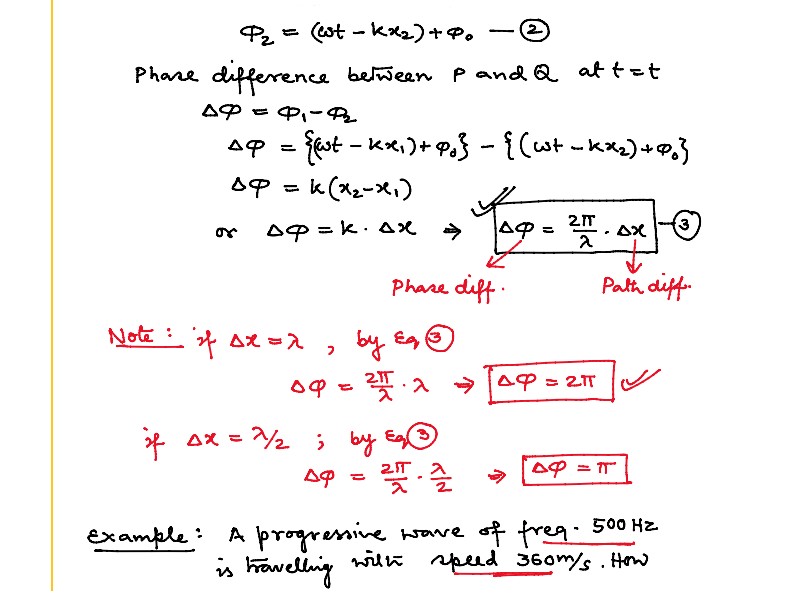 Φ₂ = (ωt - kx₂) + φ₀ — ②
Phase difference between P and Q at t = t
Δφ = Φ₁ - Φ₂
Δφ = {(ωt - kx₁) + φ₀} - {(ωt - kx₂) + φ₀}
Δφ = k(x₂ - x₁)
or Δφ = k · Δx ⇒ Δφ = 2π/λ · Δx — ③
Phase diff. Path diff.
Note : if Δx = λ , by Eq ③
Δφ = 2π/λ · λ ⇒ Δφ = 2π
if Δx = λ/2 ; by Eq ③
Δφ = 2π/λ · λ/2 ⇒ Δφ = π
Example : A progressive wave of freq. 500 Hz
is travelling with speed 360 m/s. How